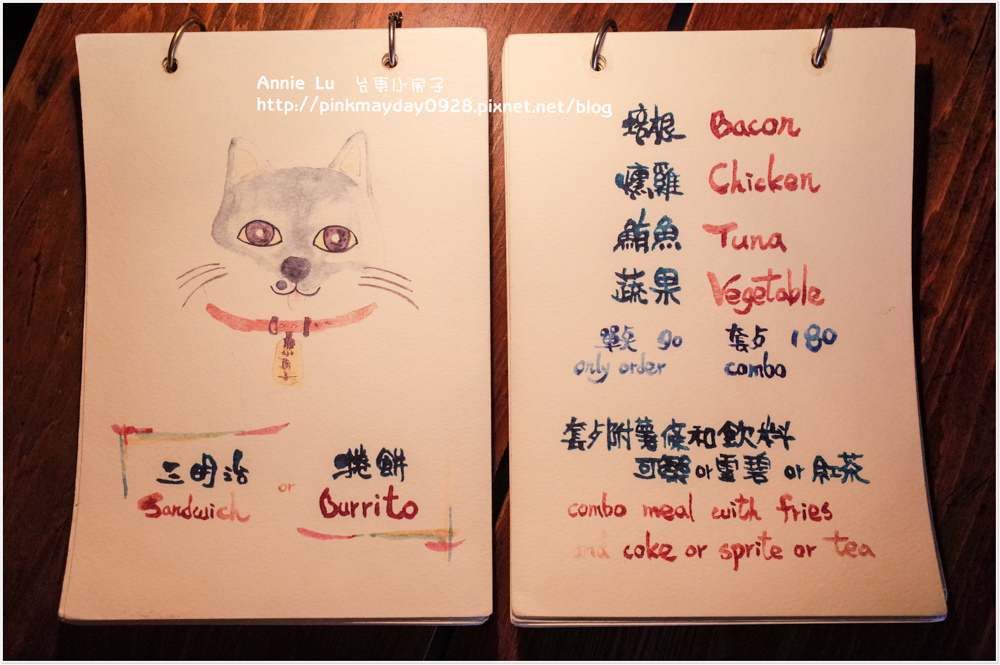 Annie Lu 台東小房子
http://pinkmayday0928.pixnet.net/blog
三明治 or 捲餅
Sandwich Burrito
培根 Bacon
燻雞 Chicken
鮪魚 Tuna
蔬果 Vegetable
單点 90 套歺 180
only order combo
套歺附薯條和飲料
可樂or雪碧 or 紅茶
combo meal with fries
and coke or sprite or tea